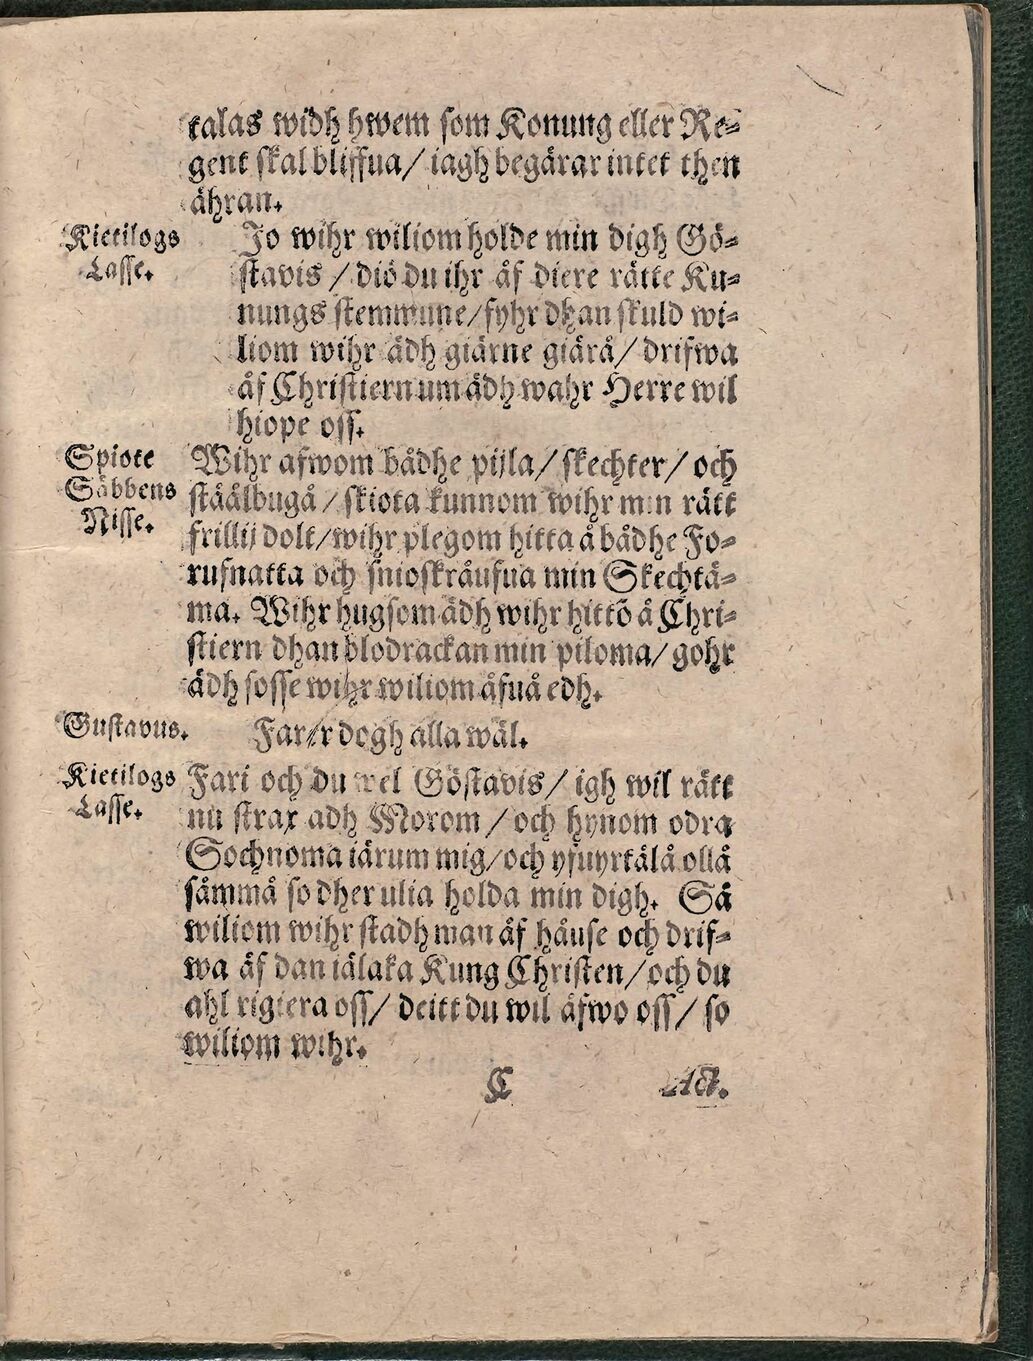 talas widh hwem som Konung eller Re-
gent skal bliffua/ iagh begärar intet then
ähran.
Kietilogs Lasse.
Jo wihr wiliom holde min digh Gö-
stavis / diö du ihr äf diere rätte Ku-
nungs stemmune/ fyhr dhan skuld wi-
liom wihr ädh giärne giärå/ drifwa
äf Christiern um ädh wahr Herre wil
hiope oss.
Spiote Säbbens Nisse.
Wihr afwom bådhe pijla/ skechter/ och
stäålbugå / skiota kunnom wihr min rätt
frillij dolt/ wihr plegom hitta å bådhe Fo-
rufnatta och snioskråufua min Skechtä-
ma. Wihr hugsom ädh wihr hittö ä Chri-
stiern dhan blodrackan min piloma/ gohr
ädh sosse wihr wiliom åfuå edh.
Gustavus.
Farer dogh alla wäl.
Kietilogs Lasse.
Fari och du wel Göstavis/ igh wil rätt
nu strax adh Morom / och hynom odra
Sochnoma iärum mig/ och yfuyrtälå ollå
såmmå so dher ulia holda min digh. Så
wiliom wihr stadh man äf håuse och drif-
wa äf dan iälaka Kung Christen/ och du
ahl rigiera oss/ deitt du wil åfwo oss / so
wiliom wihr.
C Act.